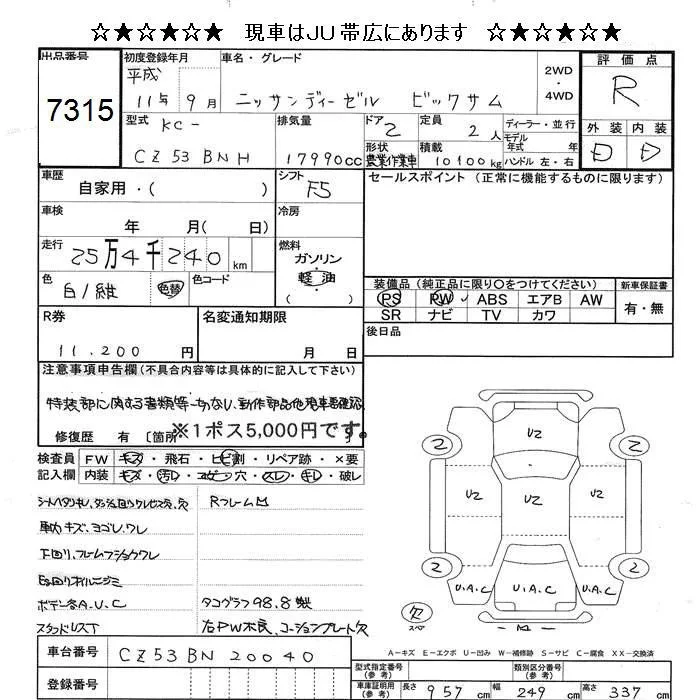 ☆★☆★☆★☆ 現車はJU帯広にあります ☆★☆★☆★☆
出品番号
7315
初度登録年月
平成
11年9月
車名・グレード
ニッサンディーゼル ビックサム
2WD
・
4WD
評価点
R
型式
KC-
CZ53BNH
排気量
17990cc
ドア
2
形状
農業作業車
定員
2人
積載
10100kg
ディーラー・並行
モデル
年式 年
ハンドル 左・右
外装 内装
D D
車歴
自家用・( )
シフト
F5
セールスポイント (正常に機能するものに限ります)
車検
年 月( 日)
冷房
走行
25万4千240km
燃料
ガソリン
軽油
( )
色
白/紺
色替
色コード
装備品 (純正品に限り○をつけてください)
PS PW ABS エアB AW
SR ナビ TV カワ
新車保証書
有・無
R券
11.200円
名変通知期限
月 日
後日品
注意事項申告欄(不具合内容等は具体的に記入して下さい)
特装部に関する書類等一切なし、動作部品他現車要確認
修復歴 有 〔箇所
※1ポス5,000円です。
検査員
記入欄
FW キズ・飛石・ヒビ割・リペア跡・×要
内装 キズ・汚レ・コゲ・穴・スレ・キレ・破レ
Rフレーム凹
車内キズ、ヨゴレ、ワレ
下回り、フレームフショクワレ
ボデー各A.U.C
タコグラフ98.8製
スタッドレスT
右PW不良、コーションプレート欠
U2
2
2
U2
U2
U2
2
2
U.A.C
U.A.C
U.A.C
欠
スペア
A-キズ E-エクボ U-凹み W-補修跡 S-サビ C-腐食 XX-交換済
車台番号
CZ53BN20040
登録番号
型式指定番号
(参考)
類別区分番号
(参考)
車庫証明用
(参考)
長さ 957cm
幅 249cm
高さ 337cm